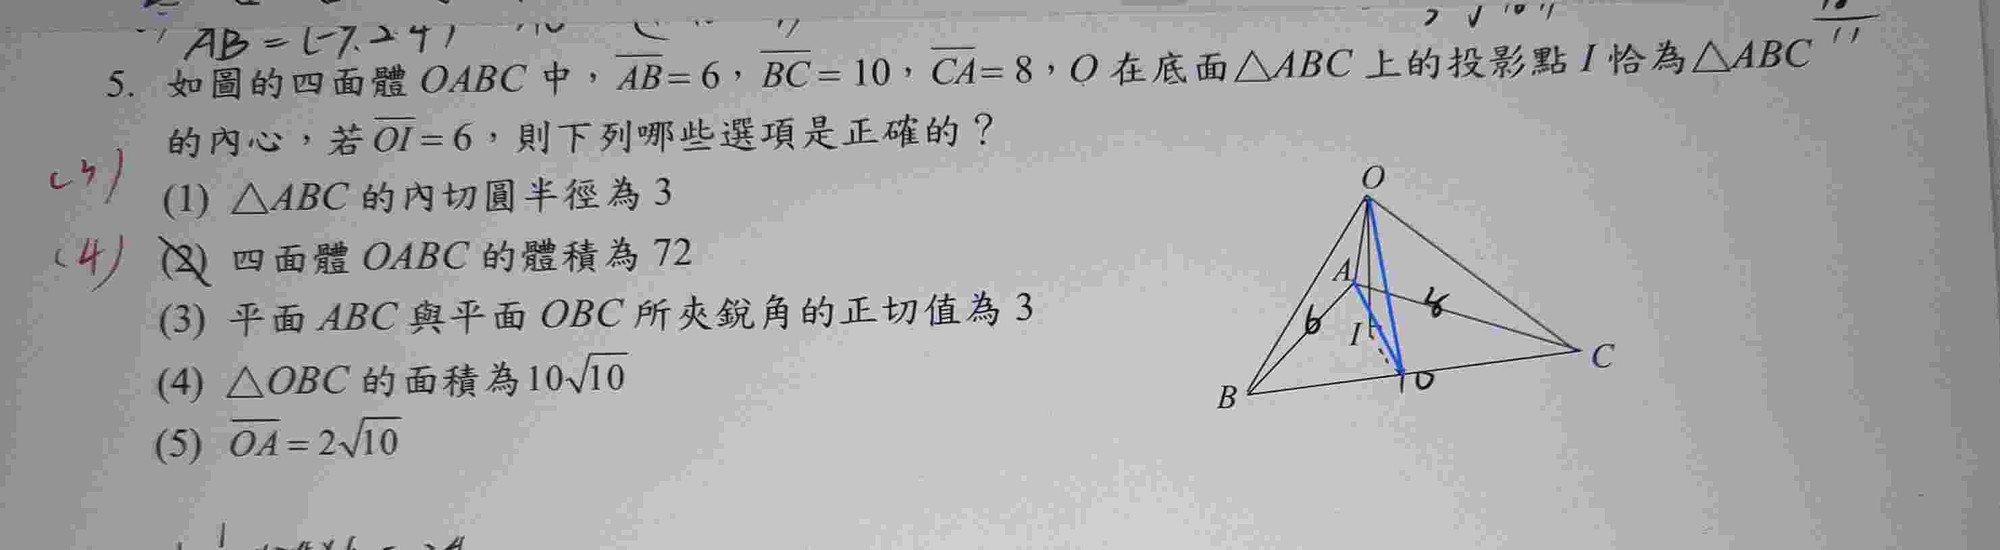 AB = (-7, 24)
5. 如圖的四面體 OABC 中，AB = 6，BC = 10，CA = 8，O 在底面△ABC 上的投影點 I 恰為△ABC
的內心，若 OI = 6，則下列哪些選項是正確的？
(3)
(1) △ABC 的內切圓半徑為 3
(4)
(2) 四面體 OABC 的體積為 72
(3) 平面 ABC 與平面 OBC 所夾銳角的正切值為 3
(4) △OBC 的面積為 10√10
(5) OA = 2√10
O
A
6
8
I
B
10
C